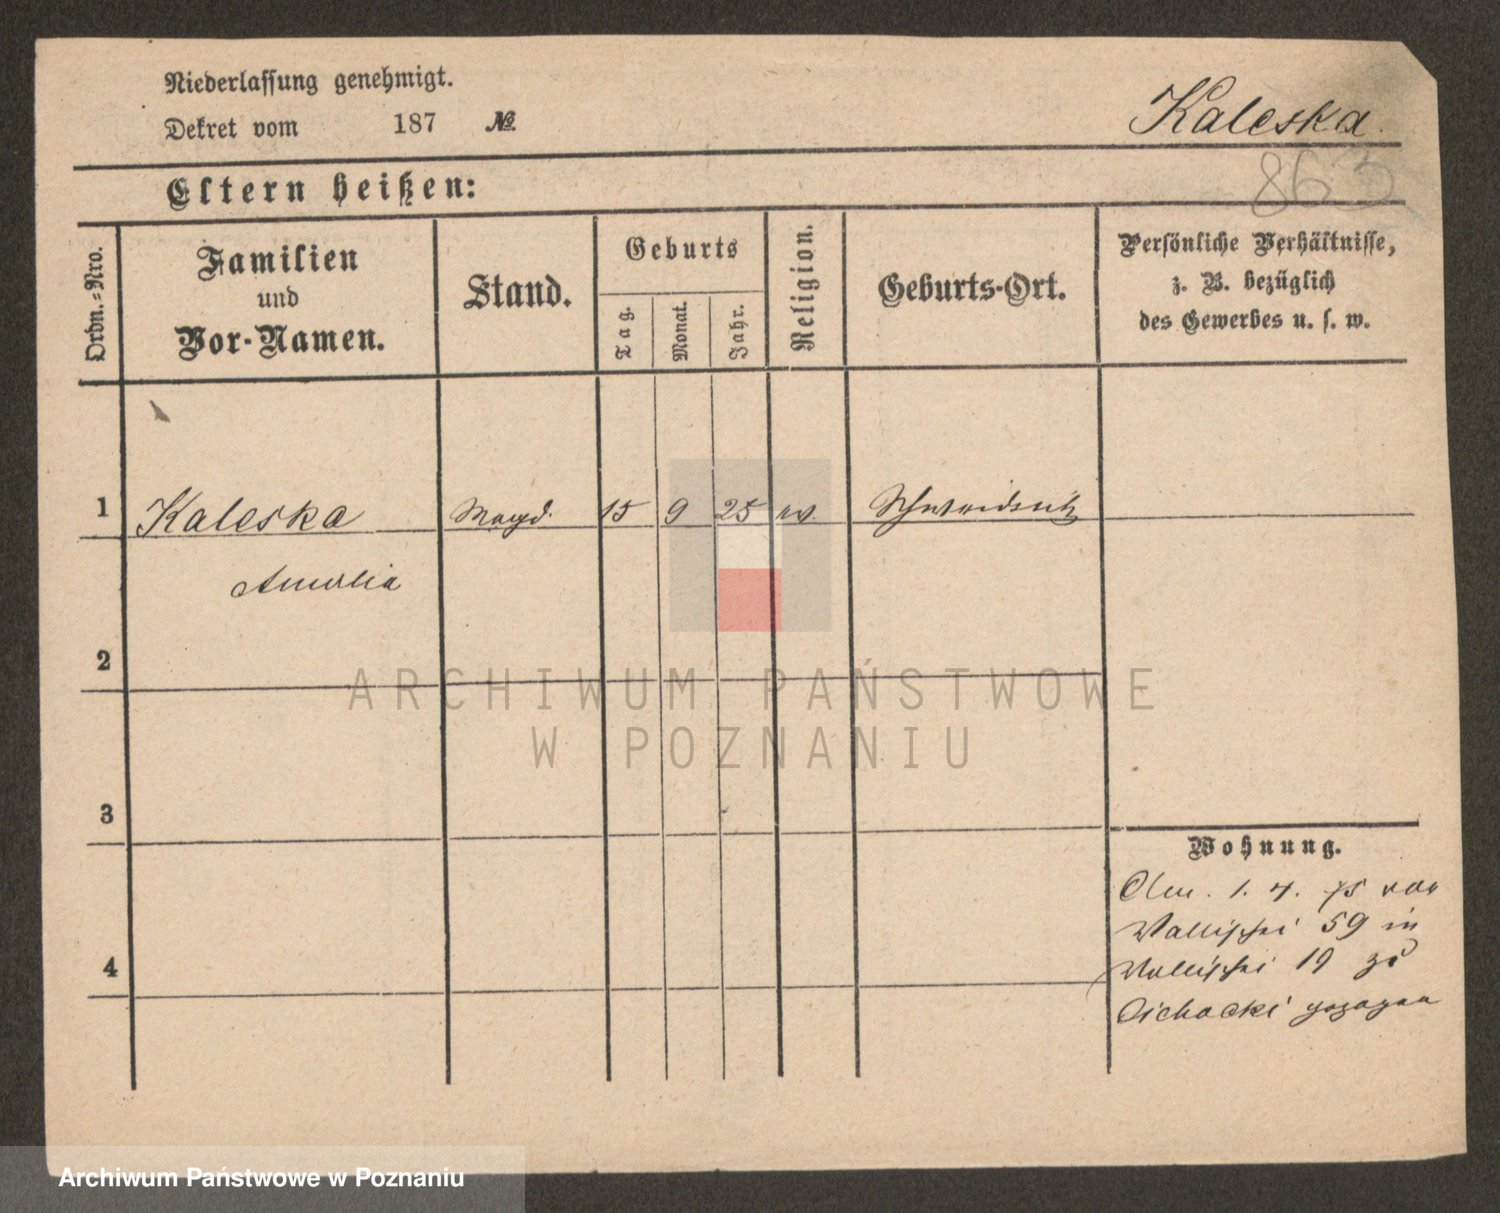 Niederlassung genehmigt.
Dekret vom 187 №
Kaleska
863
Eltern heißen:
Ordn.-Nro.
Familien
und
Vor-Namen.
Stand.
Geburts
Tag.
Monat.
Jahr.
Religion.
Geburts-Ort.
Persönliche Verhältnisse,
z. B. bezüglich
des Gewerbes u. s. w.
1 Kaleska Magd. 15 9 25 ev. Schweidnitz
Amalia
2
3
4
Wohnung.
Am 1. 4. 75 von
Wallischei 59 in
Wallischei 19 zu
Cichocki gezogen
ARCHIWUM PAŃSTWOWE
W POZNANIU
Archiwum Państwowe w Poznaniu